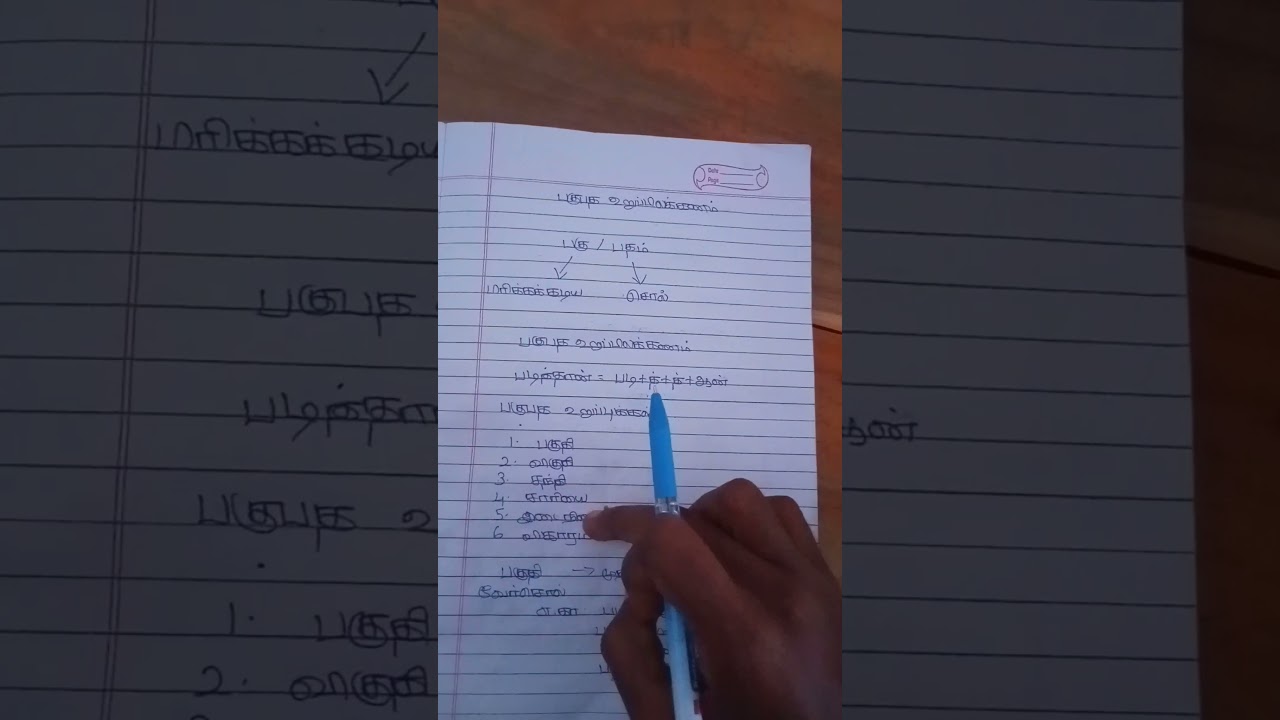 Date
Page
பகுபத உறுப்பிலக்கணம்
பகு / பதம்
பிரிக்கக்கூடிய சொல்
பகுபத உறுப்பிலக்கணம்
படித்தான் = படி+த்+த்+ஆன்
பகுபத உறுப்புக்கள்
1. பகுதி
2. விகுதி
3. சந்தி
4. சாரியை
5.
6 விகாரம்
பகுதி →
வேர்சொல்
எ.கா